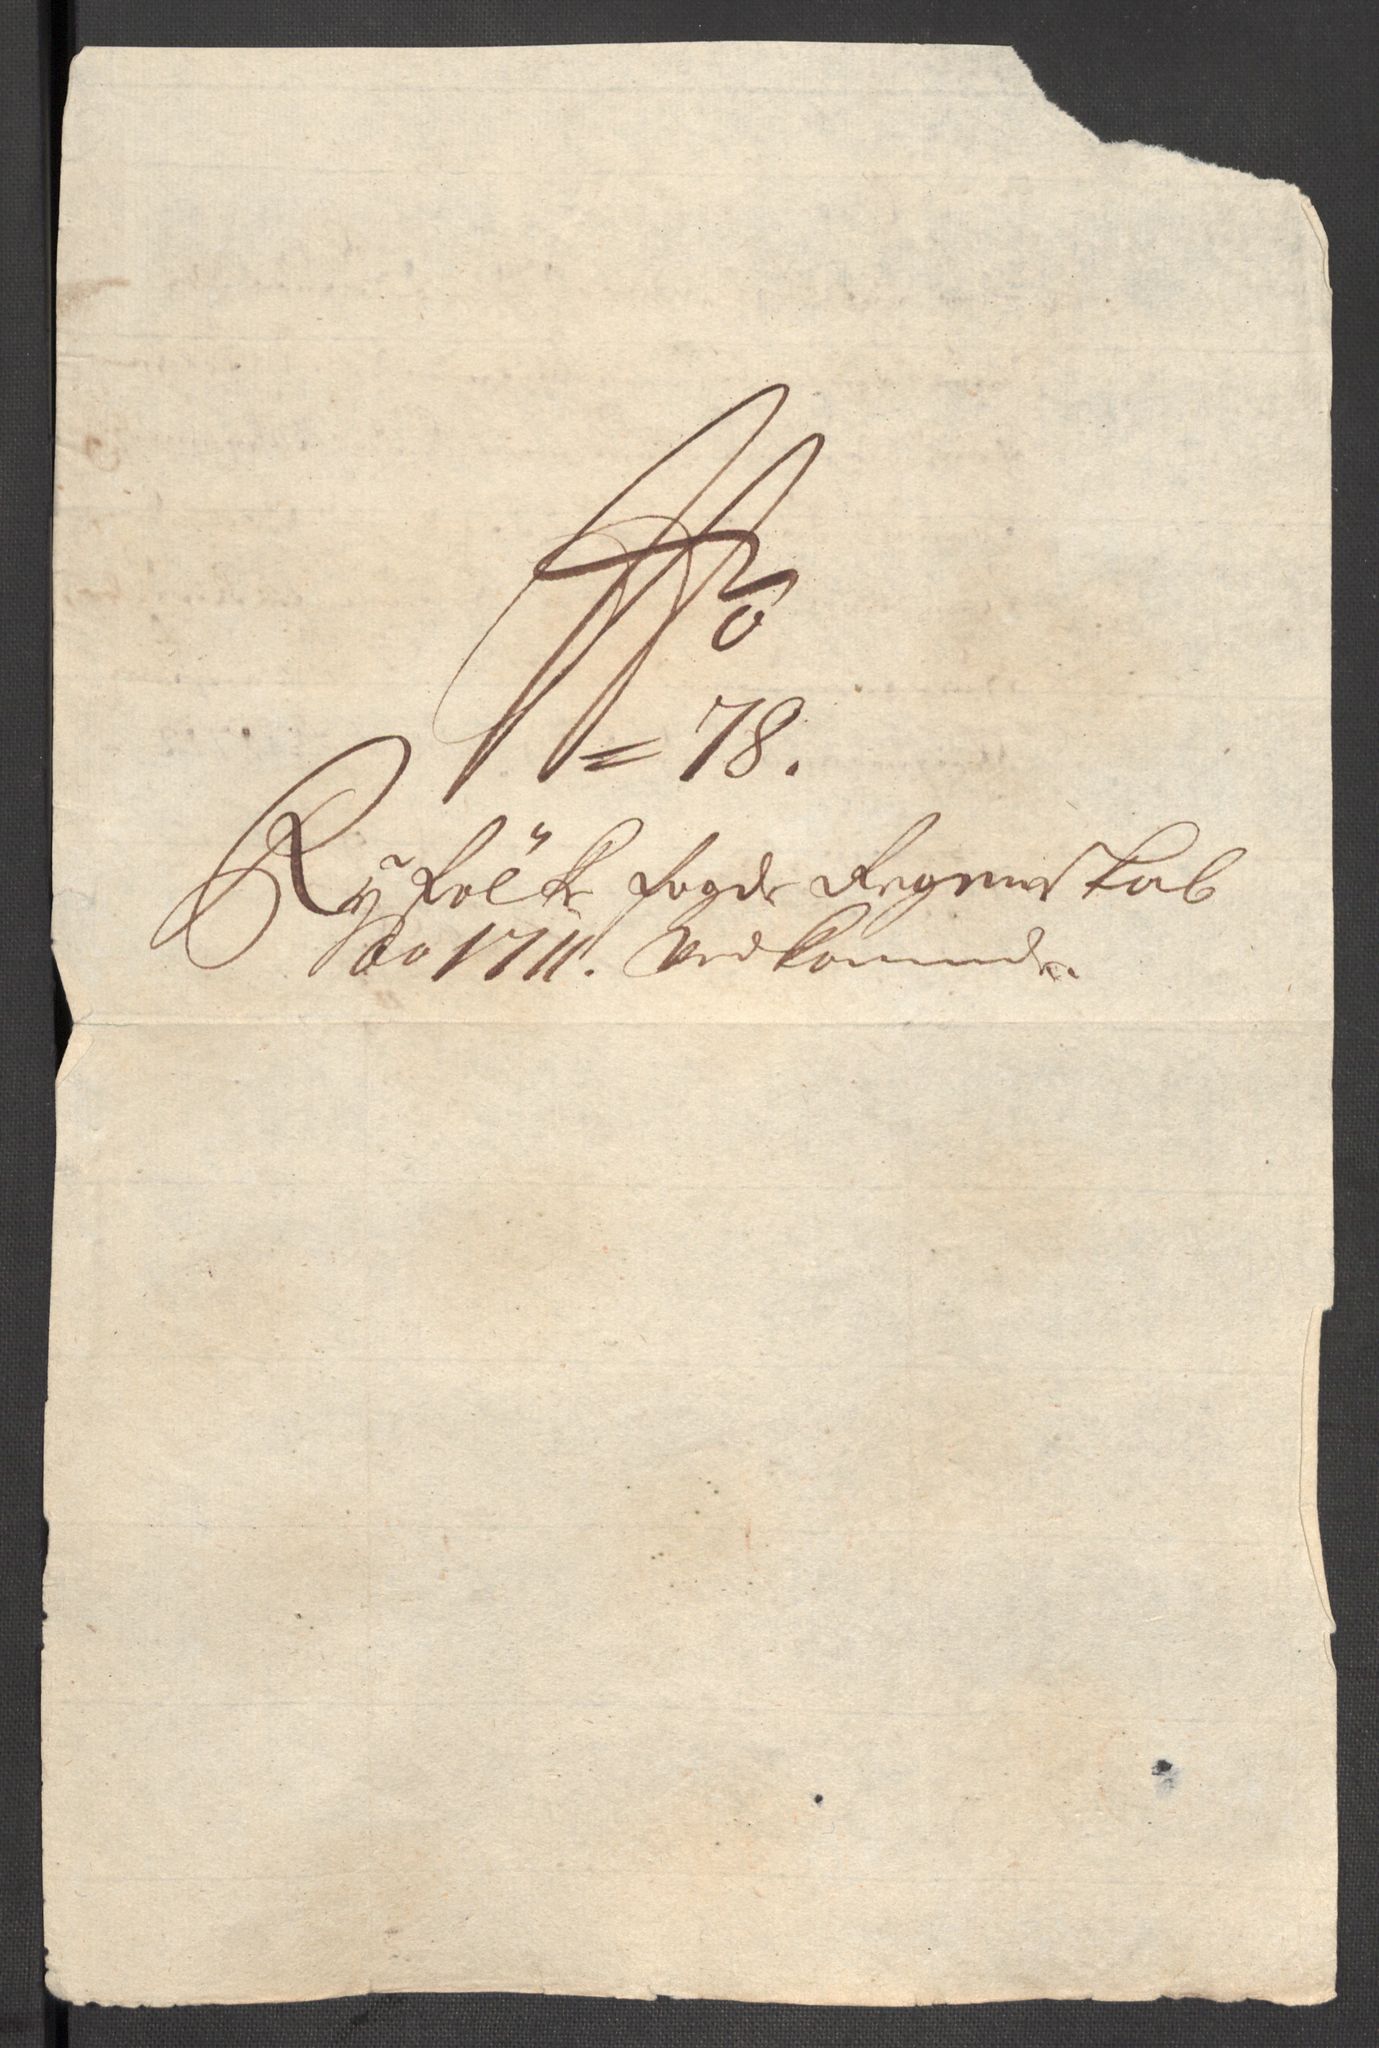 No
= 78.
Ryfölke fogde Regenskab
Ao 1711. Vedkommende